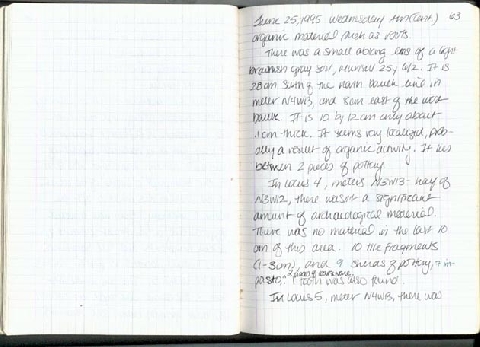 June 25, 1995 Wednesday 63
organic material such as roots.
There was a small ashing lens of a light
brownish gray soil, Munsell 2.5y 6/2. It is
28cm south of the north baulk and in
meter N4W13, and 8cm east of the west
baulk. It is 10 by 12 cm only about
1cm thick. It seems very localized, prob-
ably a result of organic activity. It lies
between 2 pieces of pottery.
In Locus 4, meters N3W13- half of
N3W12, there wasn't a significant
amount of archaeological material.
There was no material in the last 10
cm of this area. 10 tile fragments
and 9 sherds of pottery,
1 tooth was also found
In Locus 5, meter N4W13, there was